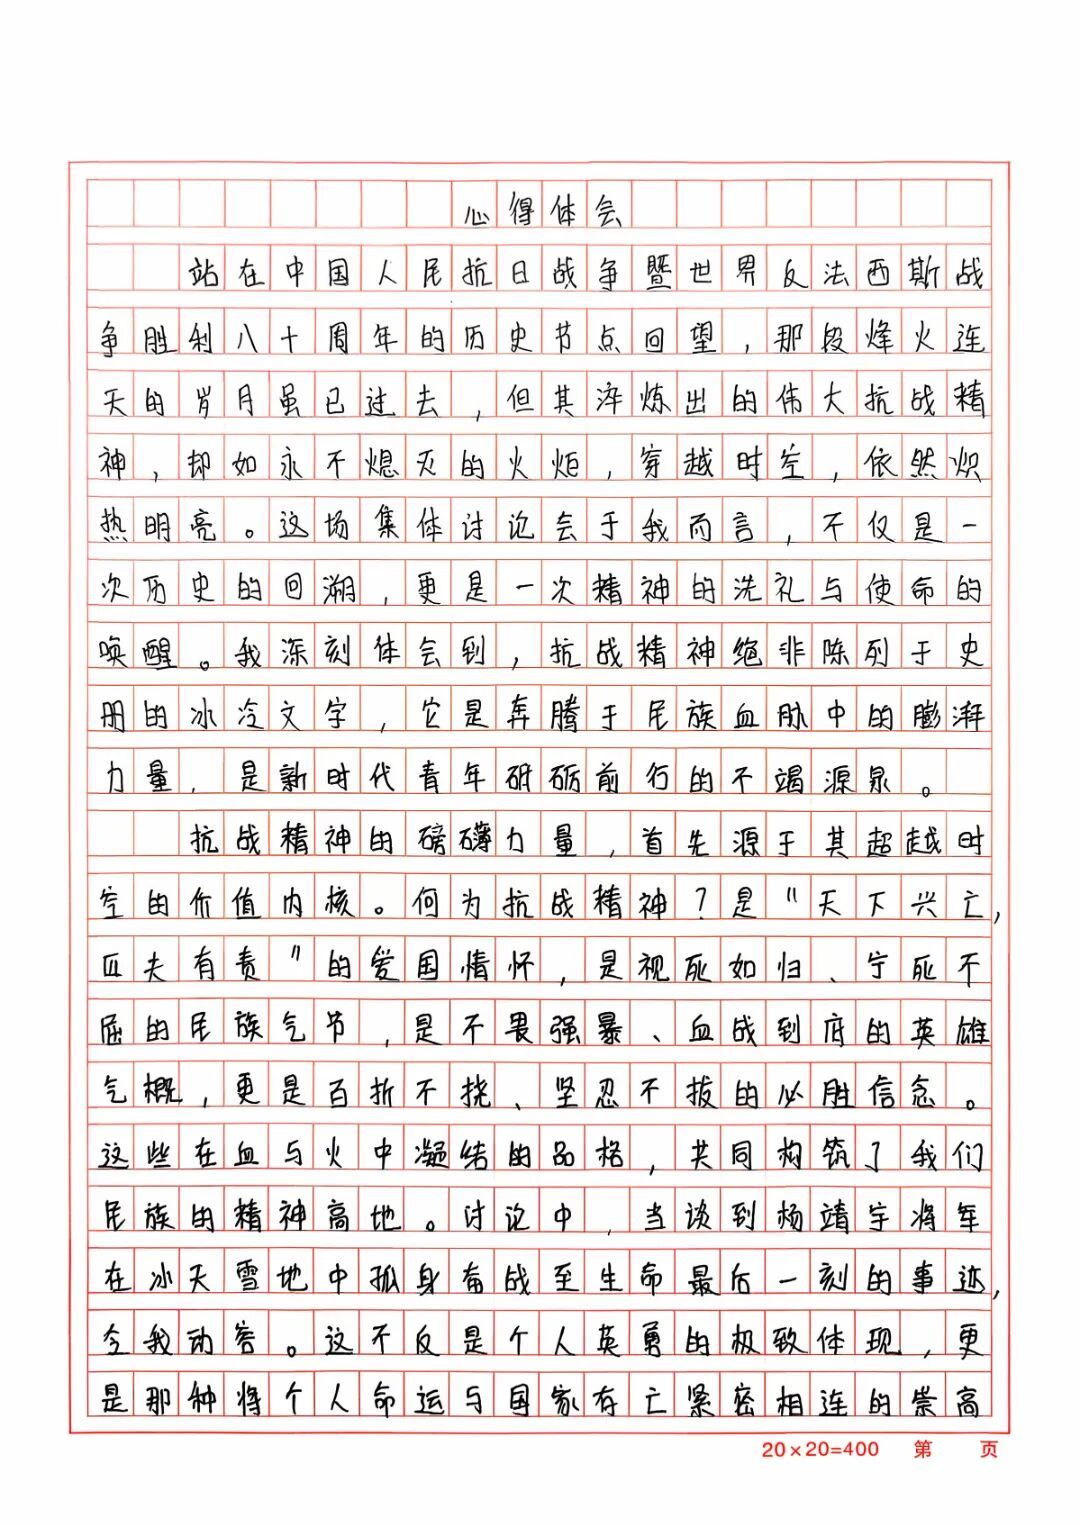 心得体会
站在中国人民抗日战争暨世界反法西斯战
争胜利八十周年的历史节点回望，那段烽火连
天的岁月虽已过去，但其淬炼出的伟大抗战精
神，却如永不熄灭的火炬，穿越时空，依然炽
热明亮。这场集体讨论会于我而言，不仅是一
次历史的回溯，更是一次精神的洗礼与使命的
唤醒。我深刻体会到，抗战精神绝非陈列于史
册的冰冷文字，它是奔腾于民族血脉中的膨湃
力量，是新时代青年砥砺前行的不竭源泉。
抗战精神的磅礴力量，首先源于其超越时
空的价值内核。何为抗战精神？是“天下兴亡，
匹夫有责”的爱国情怀，是视死如归、宁死不
屈的民族气节，是不畏强暴、血战到底的英雄
气概，更是百折不挠、坚忍不拔的必胜信念。
这些在血与火中凝结的品格，共同构筑了我们
民族的精神高地。讨论中，当谈到杨靖宇将军
在冰天雪地中孤身奋战至生命最后一刻的事迹，
令我动容。这不反是个人英勇的极致体现，更
是那种将个人命运与国家存亡紧密相连的崇高
20×20=400 第 页